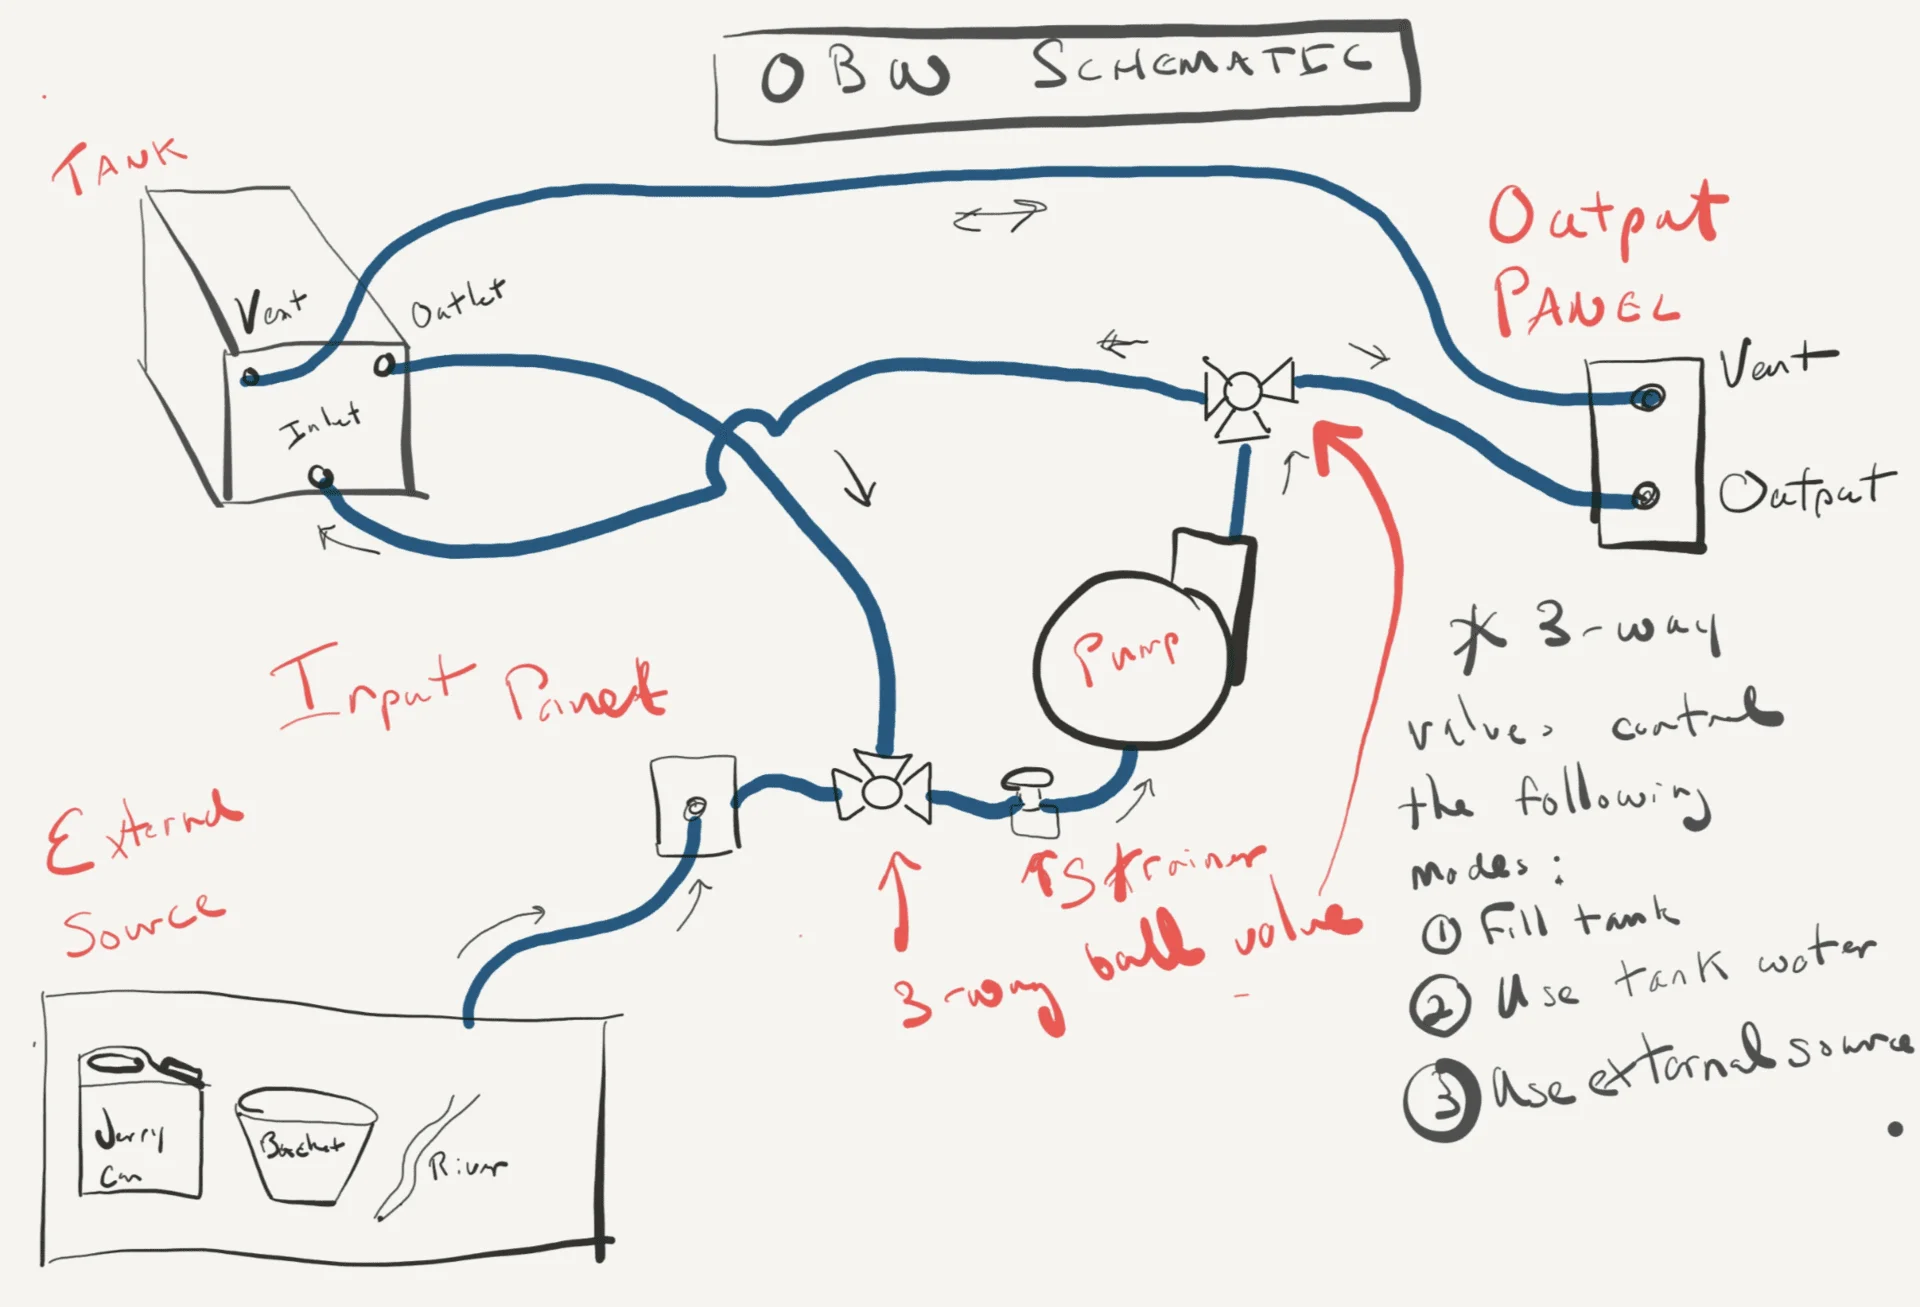 OBW SCHEMATIC
TANK
Vent
Outlet
Inlet
Output
PANEL
Vent
Output
Pump
Input Panel
External
Source
Strainer
3-way ball valve
Jerry
Can
Bucket
River
* 3-way
valves control
the following
modes:
① Fill tank
② Use tank water
③ Use external source